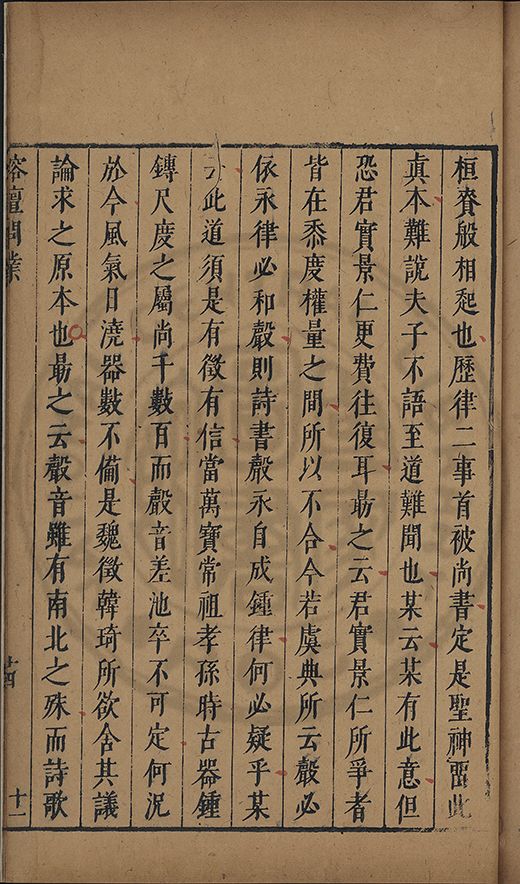 桓賚般相起也歷律二事首被尚書定是聖神畱此
真本難說夫子不語至道難聞也某云某有此意但
恐君實景仁更費往復耳勗之云君實景仁所爭者
皆在黍度權量之間所以不合今若虞典所云聲必
依永律必和聲則詩書聲永自成鍾律何必疑乎某
云此道須是有徵有信當萬寶常祖孝孫時古器鍾
鏄尺度之屬尚千數百而聲音差池卒不可定何況
於今風氣日澆器數不備是魏徵韓琦所欲舍其議
論求之原本也勗之云聲音雖有南北之殊而詩歌
榕壇問業
十一